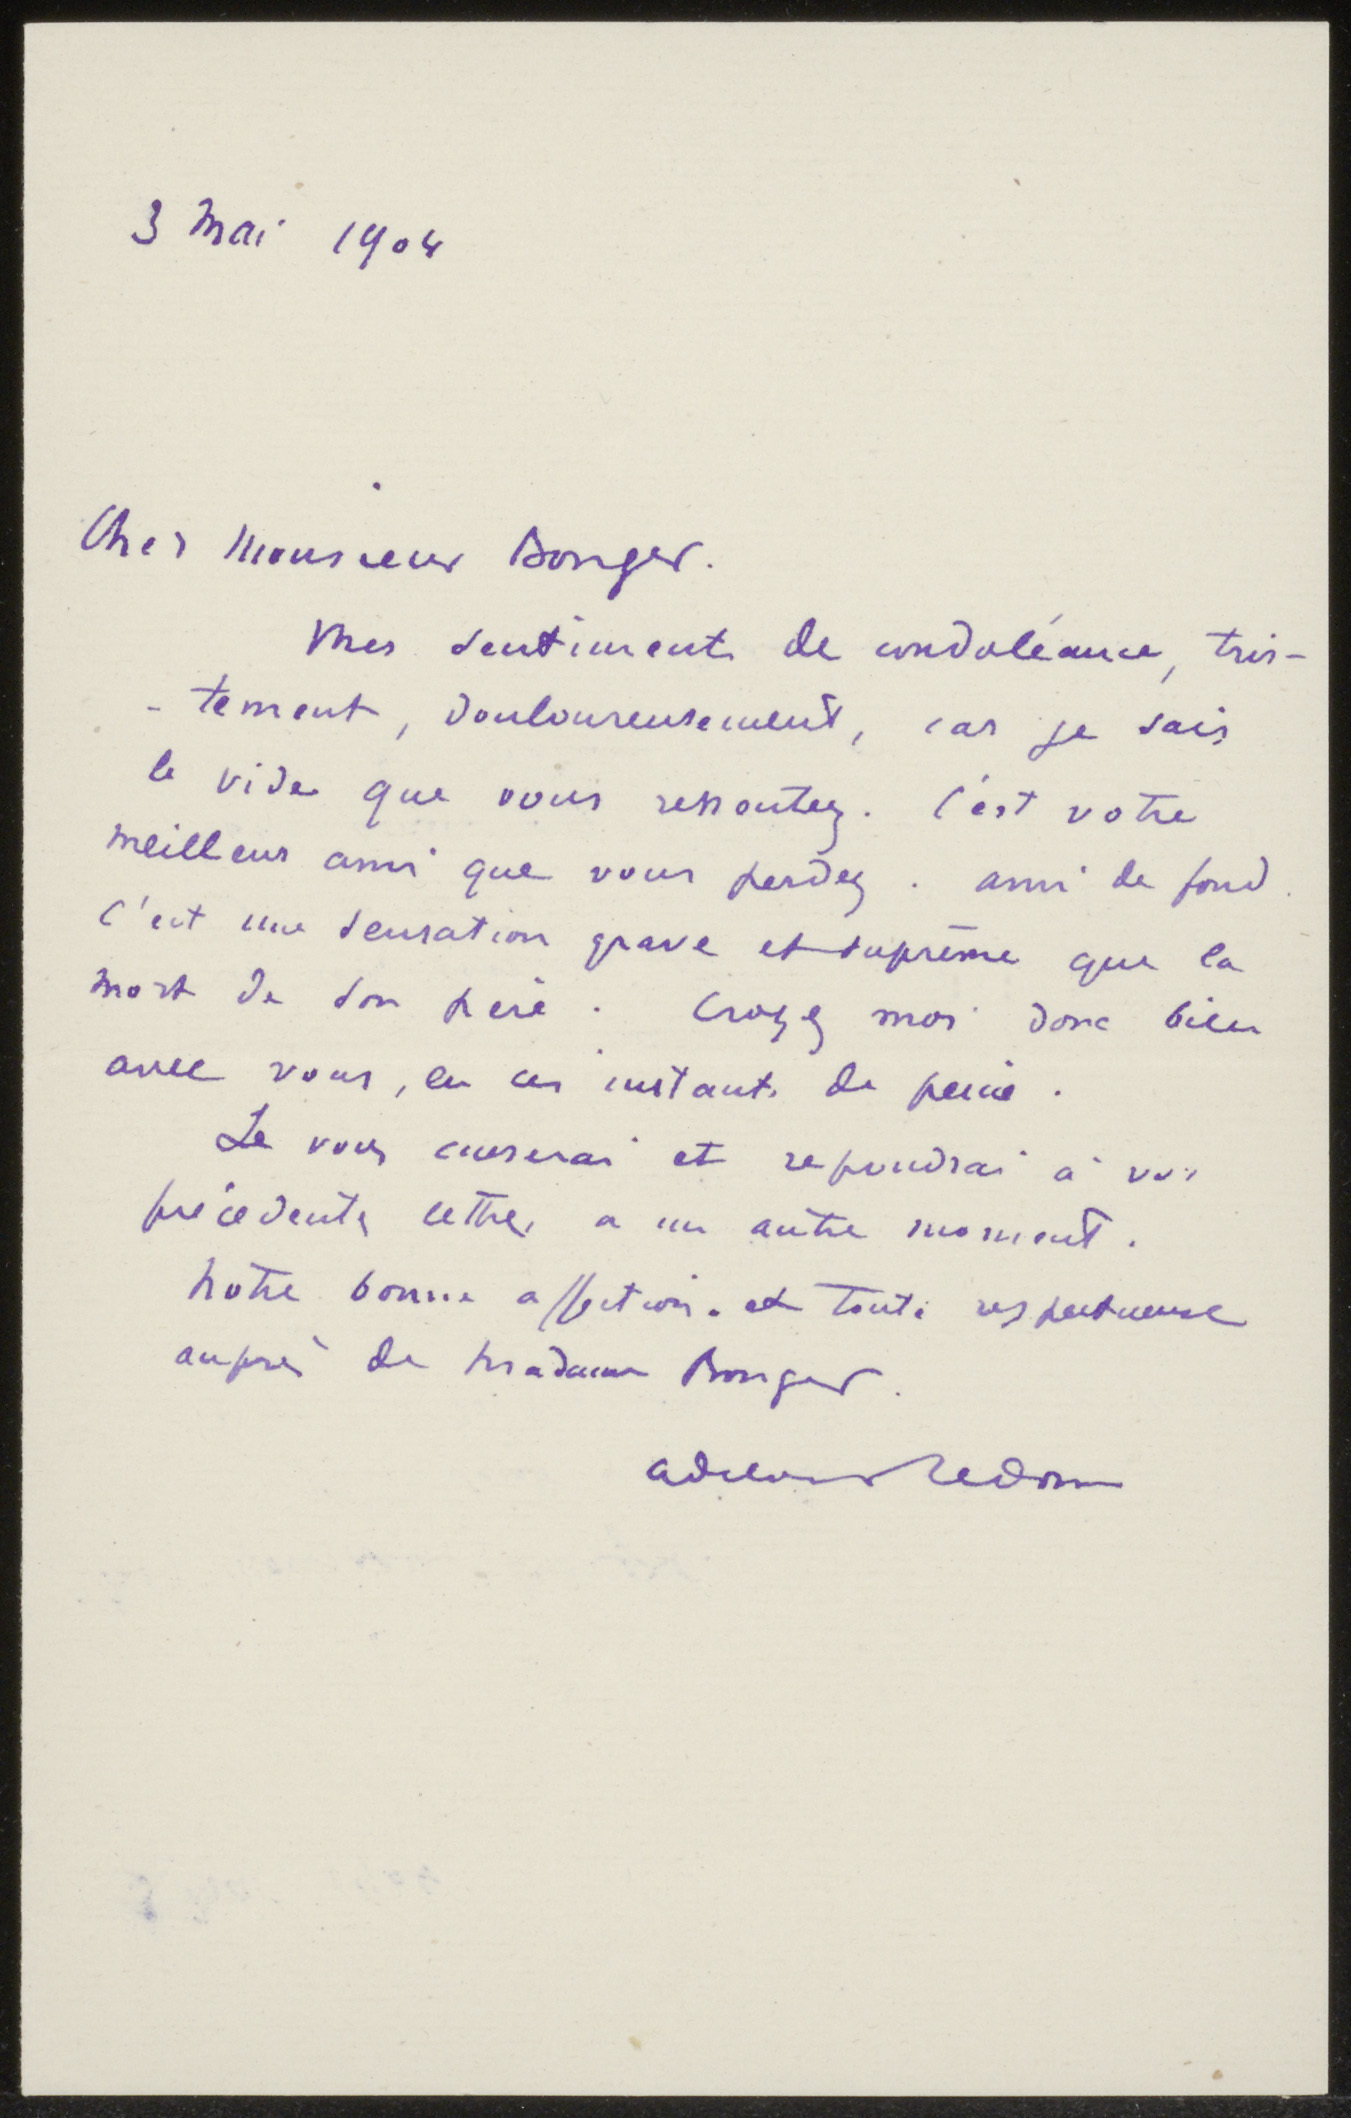 3 Mai 1904
Cher Monsieur Bonger.
Mes sentiments de condoléance, tris-
- tement, douloureusement, car je sais
le vide que vous ressentez. C'est votre
meilleur ami que vous perdez. ami de fond.
C'est une sensation grave et suprême que la
mort de son père. Croyez moi donc bien
avec vous, en ces instants de peine.
Je vous et repondrai à vos
précédentes lettres a un autre moment.
Notre bonne affection. et toute respectueuse
auprès de Madame Bonger.
Redon